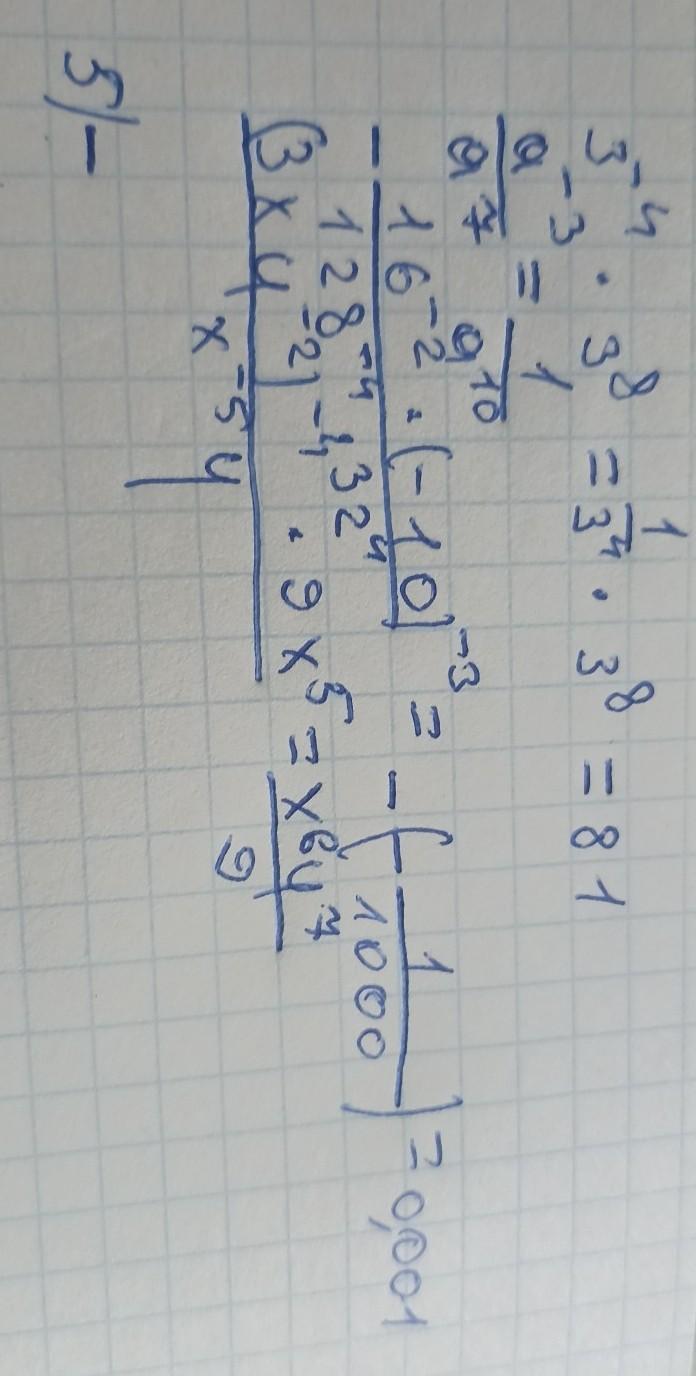 3⁻⁴ · 3⁸ = 1/3⁴ · 3⁸ = 81
a⁻³/a⁷ = 1/a¹⁰
- 16⁻² · (-10)⁻³/128⁻⁴ · 32⁴ = -(-1/1000) = 0,001
(3xy⁻²)⁻⁴ · 9x⁵/x⁻⁵y = x⁶y⁷/9
5/-